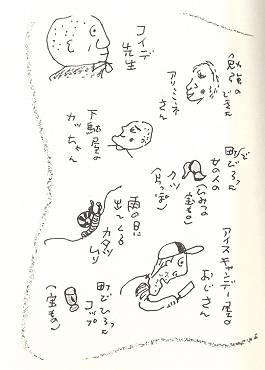 コイデ
先生
勉強の
できる
アリミネ
さん
下駄屋の
カッちゃん
町で
ひろった
女の人の
クツ
(片っぽ)
(ひみつの
宝もの)
雨の日
出てくる
カタツ
ムリ
アイスキャンデー屋の
おじさん
町でひろった
コップ
(宝もの)